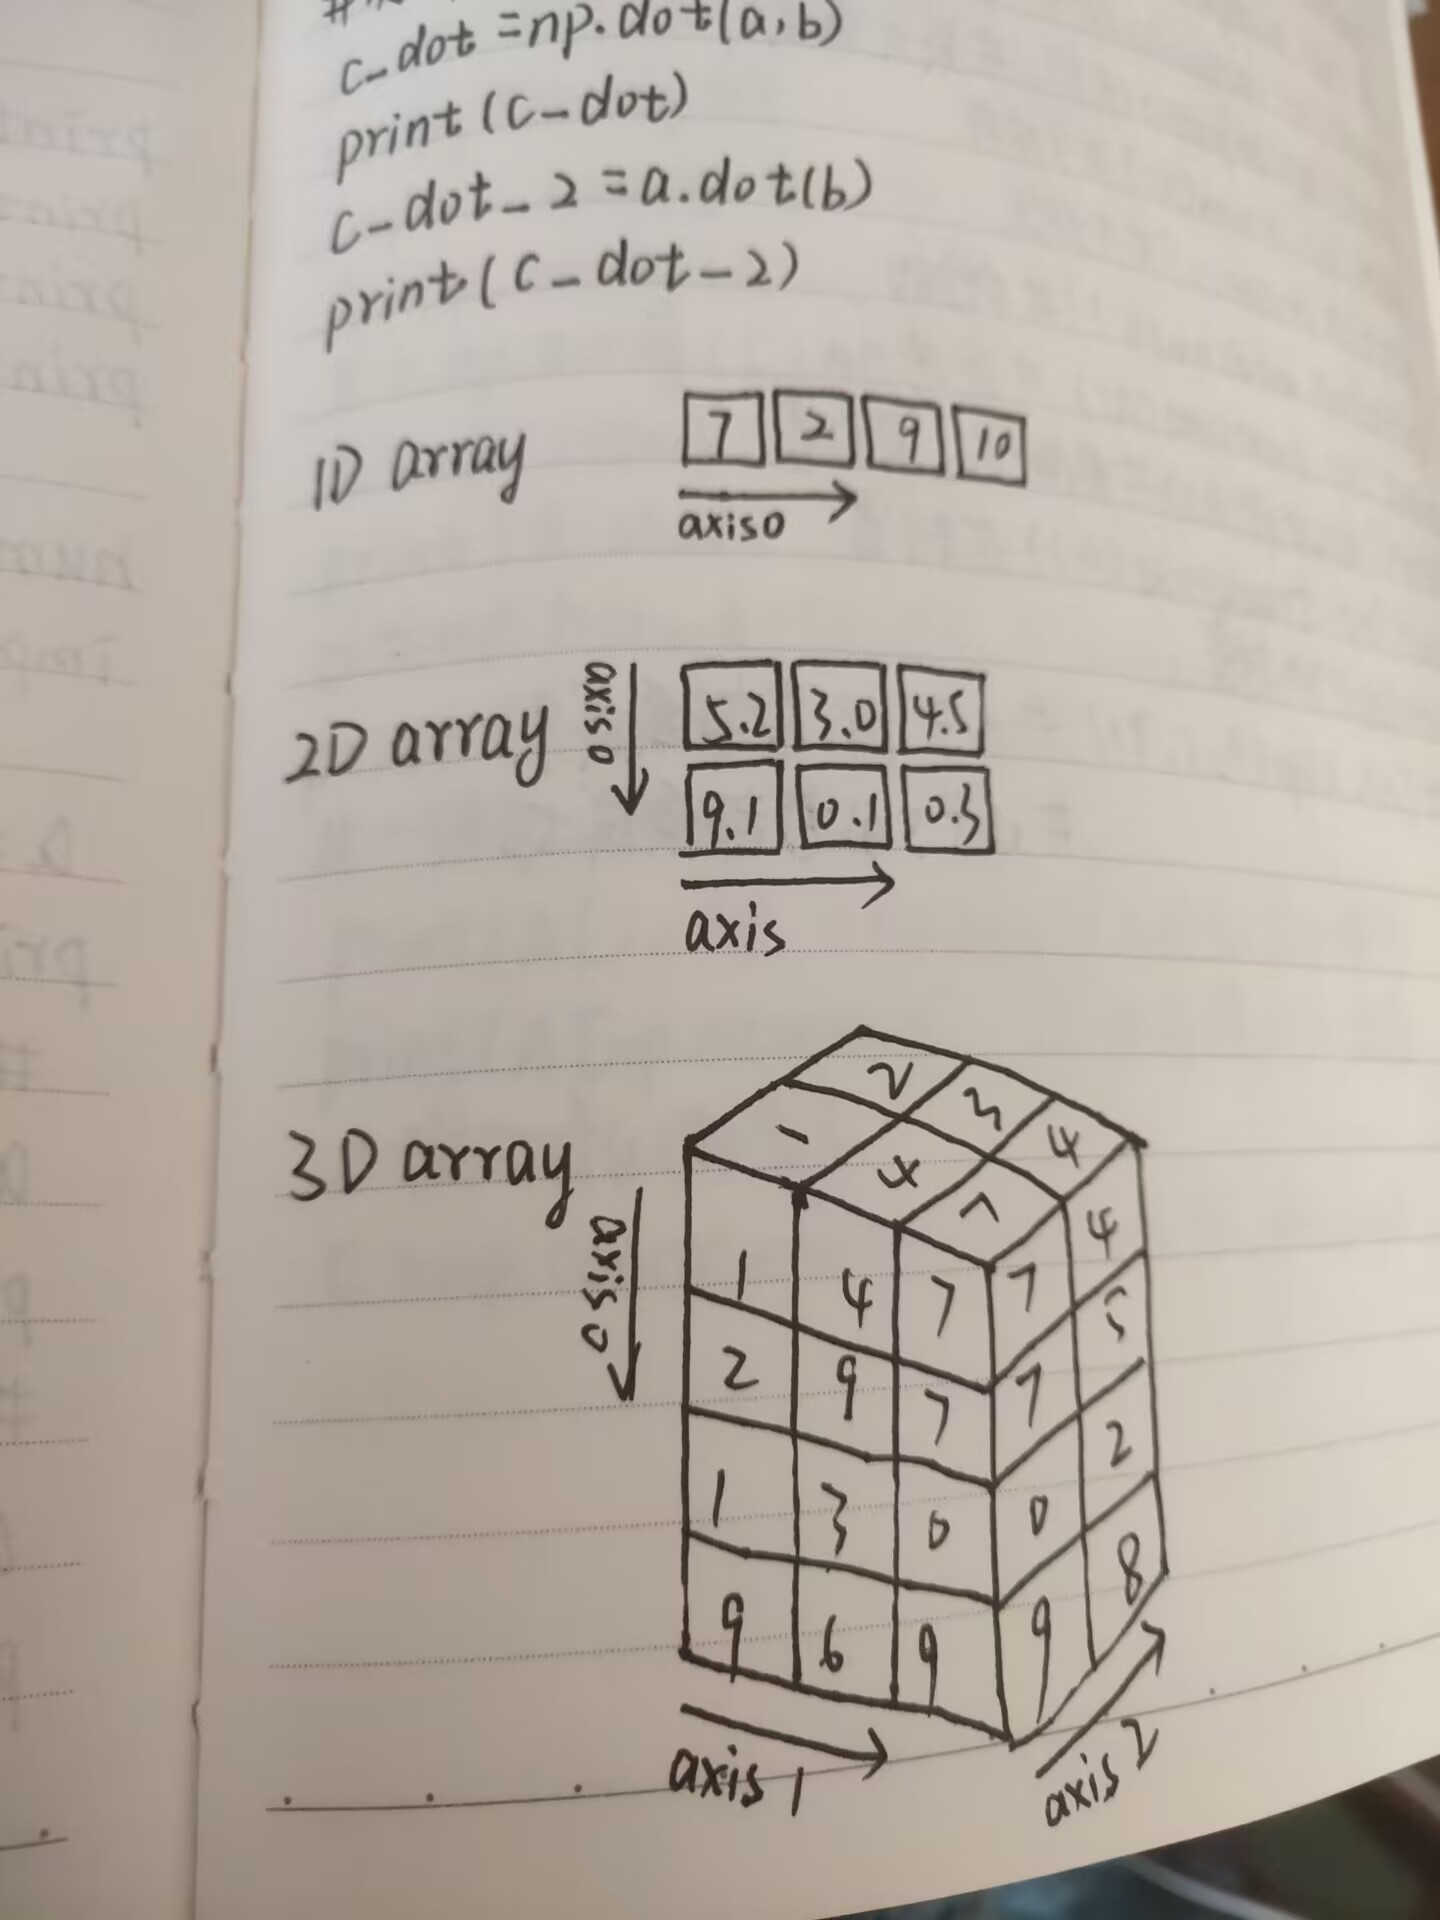 c_dot =np.dot(a,b)
print(c_dot)
c_dot_2 =a.dot(b)
print(c_dot_2)
1D array
7 2 9 10
axis0
2D array
axis0
5.2 3.0 4.5
9.1 0.1 0.3
axis
3D array
axis0
2 3 4
1 4 7
1 4 7 7 4
2 9 7 7 5
1 3 0 0 2
9 6 9 9 8
axis 1
axis 2